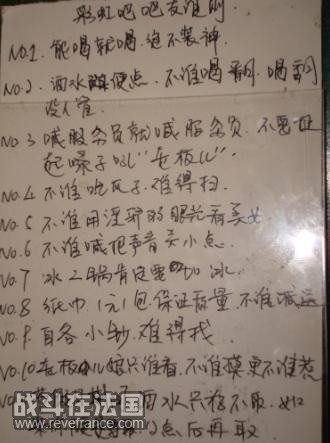 彩虹吧吧友准则
NO.1. 能喝就喝. 绝不装神.
NO.2. 酒水随便点. 不准喝翻. 喝翻
没人管
NO.3 喊服务员就喊服务员. 不要扯
起嗓子吼“老板儿”
NO.4 不准吃瓜子. 难得扫
NO.5 不准用淫邪的眼光看美女
NO.6 不准喊把声音关小点.
NO.7 冰二锅肯定要加冰.
NO.8 纸巾1元1包. 保证质量. 不准减运
NO.9 自各小钞. 难得找
NO.10 老板儿娘只准看. 不准摸更不准惹
NO. 酒水只存不取. 如
点后再取
战斗在法国
www.revefrance.com